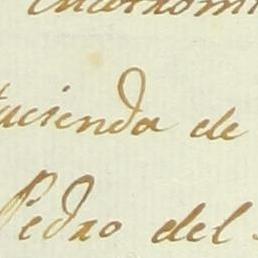 hacienda de
Pedro del